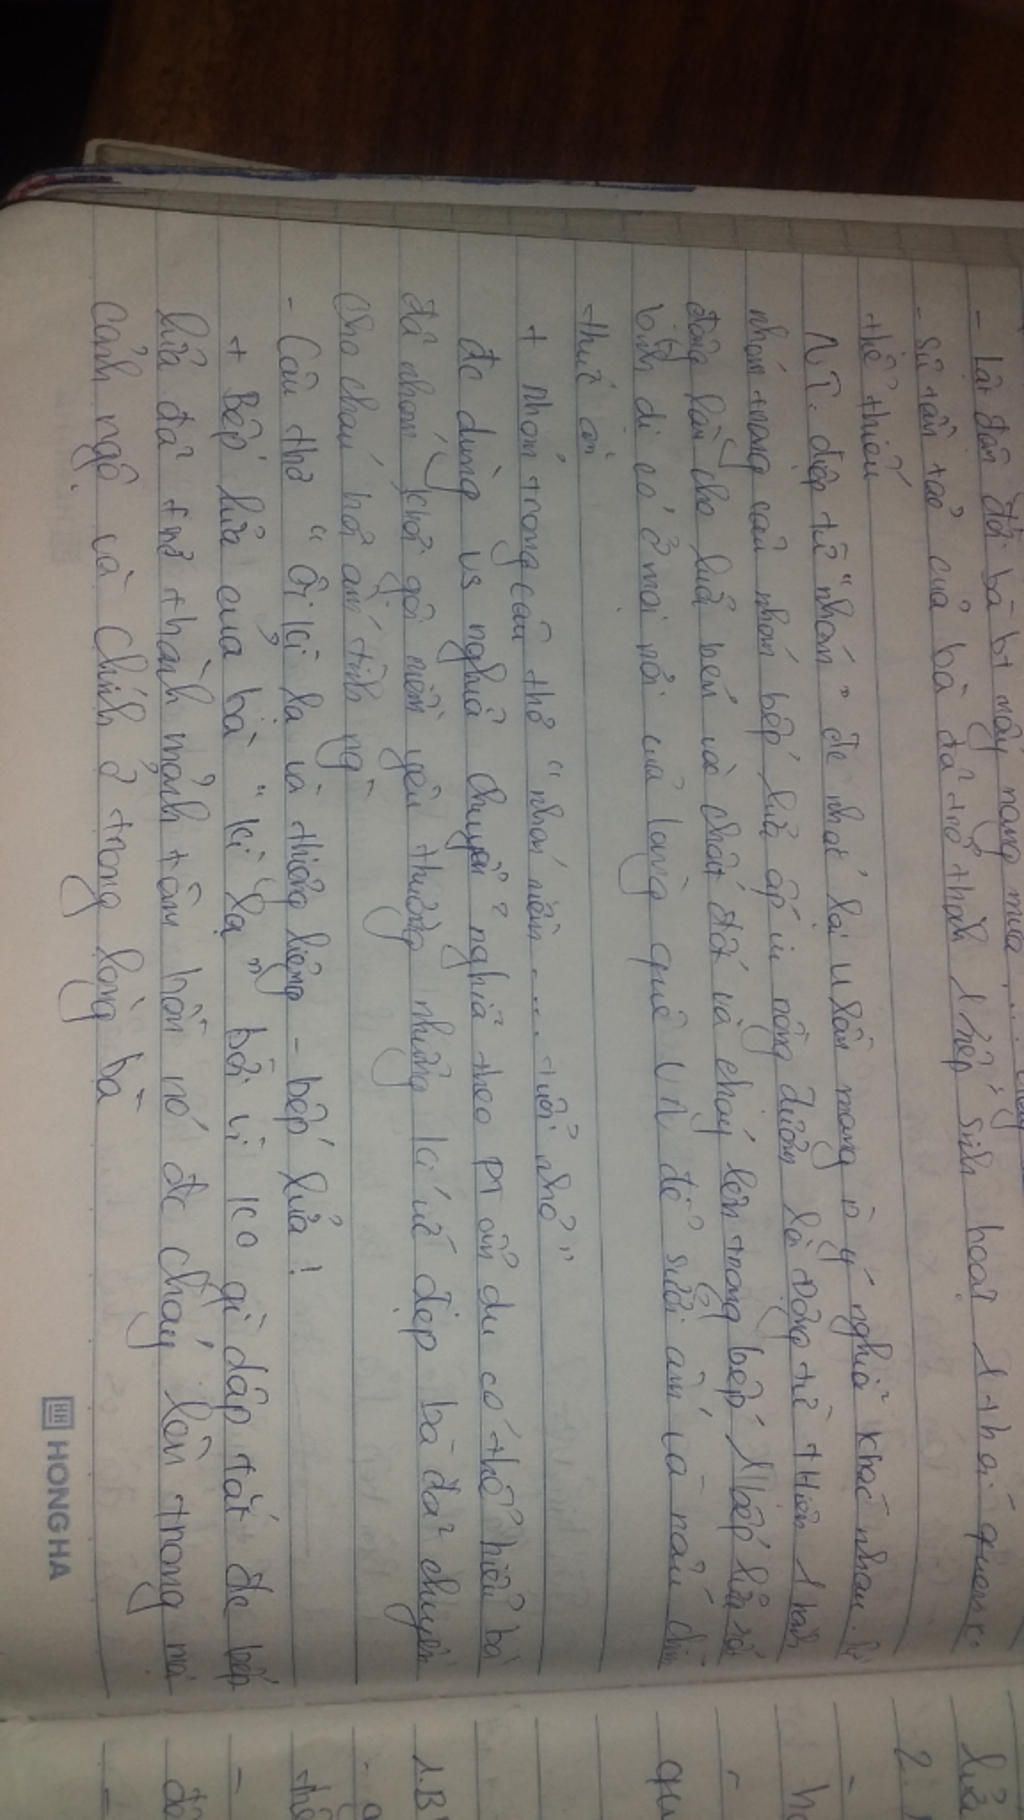 - Lận đận đời bà bt mấy nắng mưa
- Sự tần tảo của bà đã trở thành 1 nếp sinh hoạt 1 thói quen k
thể thiếu
NT: điệp từ "nhóm" đc nhắc lại 4 lần mang ý nghĩa khác nhau.
nhóm trong câu nhóm bếp lửa ấp iu nồng đượm là động từ thiên 1 hành
động làm cho lửa bén vào chất đốt và cháy lên trong bếp 1 bếp lửa rất
bình dị có ở mọi nơi của làng quê VN để sưởi ấm và nấu chín
thức ăn
+ nhóm trong câu thơ "nhóm niềm .... tuổi nhỏ"
đc dùng vs nghĩa chuyển nghĩa theo PT ẩn dụ có thể hiểu bà
đã nhóm khơi gợi niềm yêu thương những kí ức đẹp bà đã truyền
cho cháu hơi ấm tình ng
- Câu thơ "Ôi kì lạ và thiêng liêng - bếp lửa!
+ Bếp lửa của bà "kì lạ" bởi vì ko gì dập tắt đc bếp
lửa đã trở thành mảnh tâm hồn nó đc cháy lên trong mọi
cảnh ngộ và chính ở trong lòng bà
HONG HA
lửa
2.
-
-
qu
1.B
-